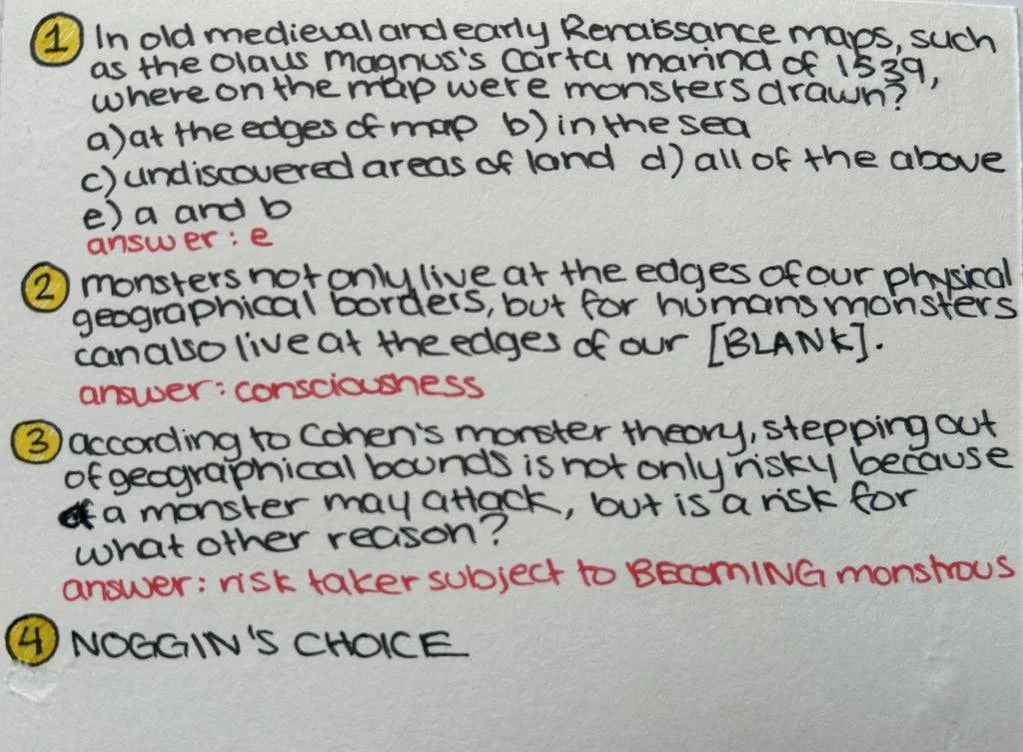 1 In old medieval and early Renaissance maps, such
as the Olaus Magnus's Carta marina of 1539,
where on the map were monsters drawn?
a) at the edges of map b) in the sea
c) undiscovered areas of land d) all of the above
e) a and b
answer: e
2 monsters not only live at the edges of our physical
geographical borders, but for humans monsters
can also live at the edges of our [BLANK].
answer: consciousness
3 according to Cohen's monster theory, stepping out
of geographical bounds is not only risky because
a monster may attack, but is a risk for
what other reason?
answer: risk taker subject to BECOMING monstrous
4 NOGGIN'S CHOICE